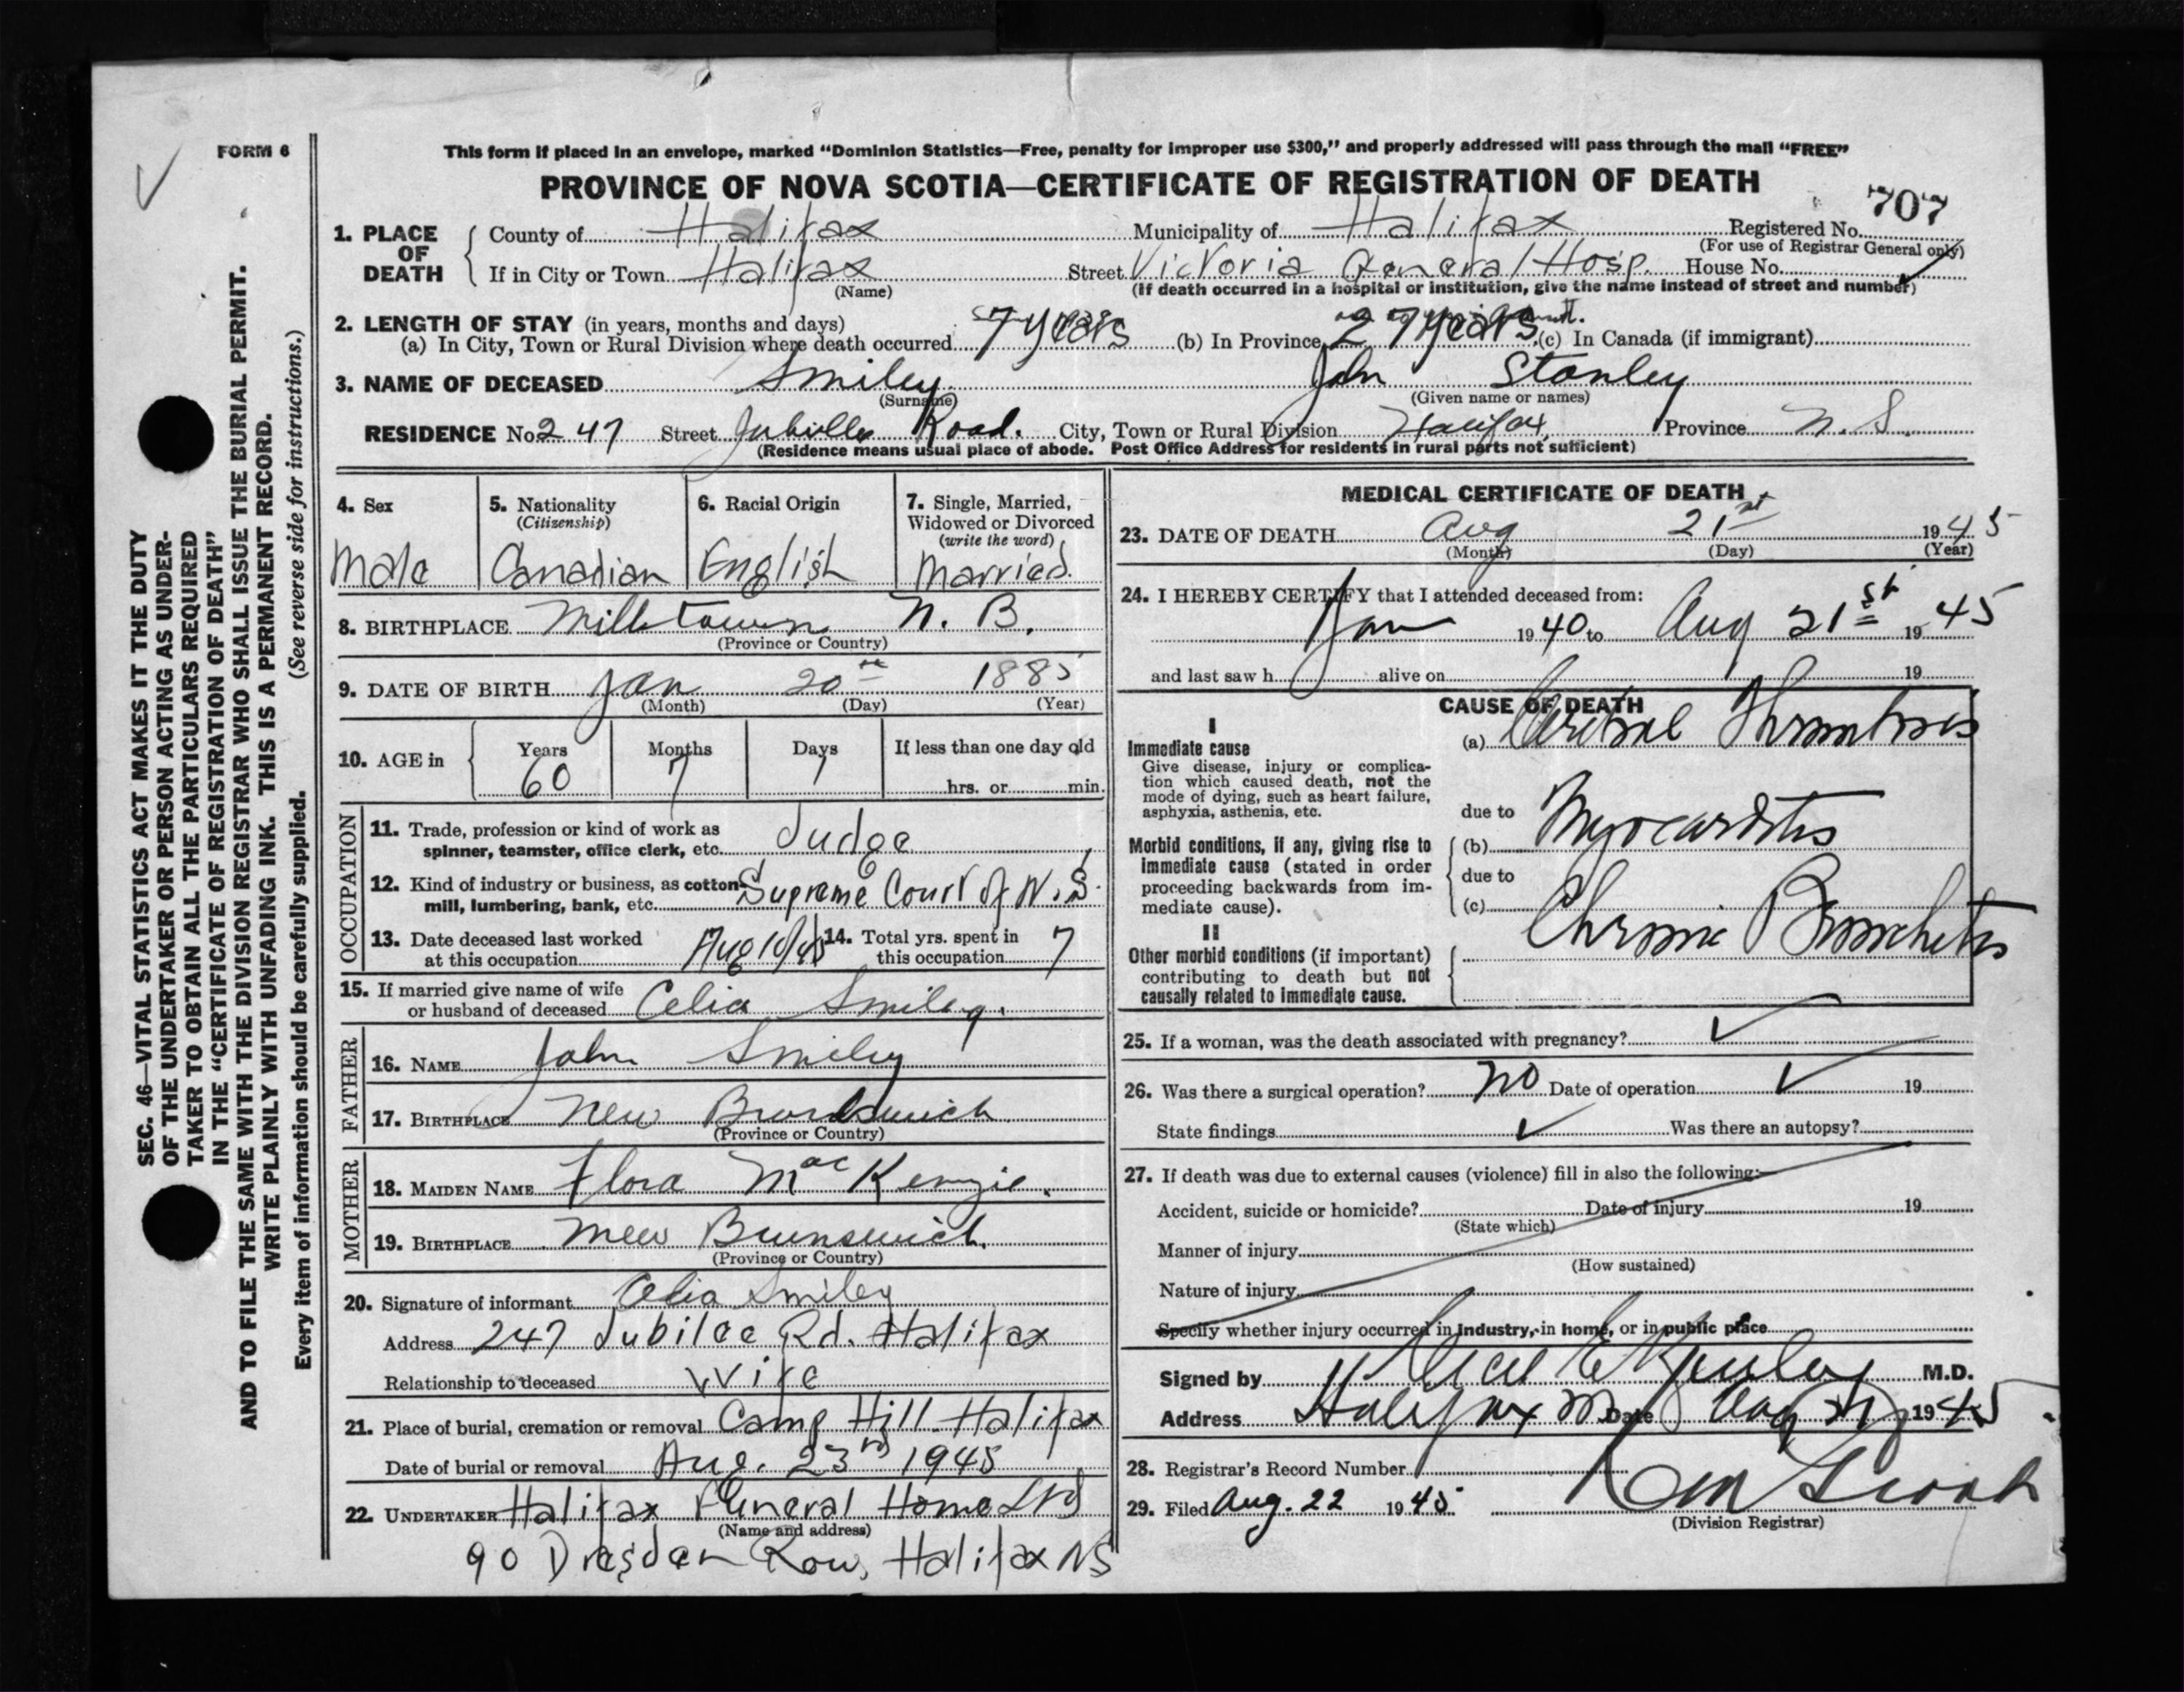 FORM 6
This form if placed in an envelope, marked "Dominion Statistics—Free, penalty for improper use $300," and properly addressed will pass through the mail "FREE"
PROVINCE OF NOVA SCOTIA—CERTIFICATE OF REGISTRATION OF DEATH
707
1. PLACE OF DEATH
County of Halifax Municipality of Halifax Registered No.
(For use of Registrar General only)
If in City or Town Halifax Street Victoria General Hosp. House No.
(Name) (If death occurred in a hospital or institution, give the name instead of street and number)
2. LENGTH OF STAY (in years, months and days)
(a) In City, Town or Rural Division where death occurred 7 years (b) In Province 27 years (c) In Canada (if immigrant)
3. NAME OF DECEASED Smiley John Stanley
(Surname) (Given name or names)
RESIDENCE No. 247 Street Jubille Road. City, Town or Rural Division Halifax Province N. S.
(Residence means usual place of abode. Post Office Address for residents in rural parts not sufficient)
4. Sex Male
5. Nationality (Citizenship) Canadian
6. Racial Origin English
7. Single, Married, Widowed or Divorced (write the word) Married.
8. BIRTHPLACE Milltown N. B.
(Province or Country)
9. DATE OF BIRTH Jan 20th 1885
(Month) (Day) (Year)
10. AGE in Years 60 Months 7 Days 1 If less than one day old hrs. or min.
OCCUPATION
11. Trade, profession or kind of work as spinner, teamster, office clerk, etc. Judge
12. Kind of industry or business, as cotton mill, lumbering, bank, etc. Supreme Court of N.S.
13. Date deceased last worked at this occupation Aug 10/45 14. Total yrs. spent in this occupation 7
15. If married give name of wife or husband of deceased Celia Smiley.
FATHER
16. NAME John Smiley
17. BIRTHPLACE New Brunswick
(Province or Country)
MOTHER
18. MAIDEN NAME Flora MacKenzie.
19. BIRTHPLACE New Brunswick.
(Province or Country)
20. Signature of informant Celia Smiley
Address 247 Jubilee Rd. Halifax
Relationship to deceased Wife
21. Place of burial, cremation or removal Camp Hill Halifax
Date of burial or removal Aug. 23rd 1945
22. UNDERTAKER Halifax Funeral Home Ltd
(Name and address)
90 Dresden Row, Halifax NS
MEDICAL CERTIFICATE OF DEATH
23. DATE OF DEATH Aug 21st 1945
(Month) (Day) (Year)
24. I HEREBY CERTIFY that I attended deceased from:
Jan 1940 to Aug 21st 1945
and last saw h alive on 19
CAUSE OF DEATH
I
Immediate cause
Give disease, injury or complication which caused death, not the mode of dying, such as heart failure, asphyxia, asthenia, etc.
(a) Cerebral Thrombosis
due to
Morbid conditions, if any, giving rise to immediate cause (stated in order proceeding backwards from immediate cause).
(b) Myocarditis
due to
(c) Chronic Bronchitis
II
Other morbid conditions (if important) contributing to death but not causally related to immediate cause.
25. If a woman, was the death associated with pregnancy?
26. Was there a surgical operation? No Date of operation 19
State findings Was there an autopsy?
27. If death was due to external causes (violence) fill in also the following:—
Accident, suicide or homicide? Date of injury 19
(State which)
Manner of injury
(How sustained)
Nature of injury
Specify whether injury occurred in industry, in home, or in public place
Signed by M.D.
Address Halifax Date Aug 1945
28. Registrar's Record Number
29. Filed Aug. 22 1945
(Division Registrar)
SEC. 46—VITAL STATISTICS ACT MAKES IT THE DUTY
OF THE UNDERTAKER OR PERSON ACTING AS UNDER-
TAKER TO OBTAIN ALL THE PARTICULARS REQUIRED
IN THE "CERTIFICATE OF REGISTRATION OF DEATH"
AND TO FILE THE SAME WITH THE DIVISION REGISTRAR WHO SHALL ISSUE THE BURIAL PERMIT.
WRITE PLAINLY WITH UNFADING INK. THIS IS A PERMANENT RECORD.
Every item of information should be carefully supplied. (See reverse side for instructions.)